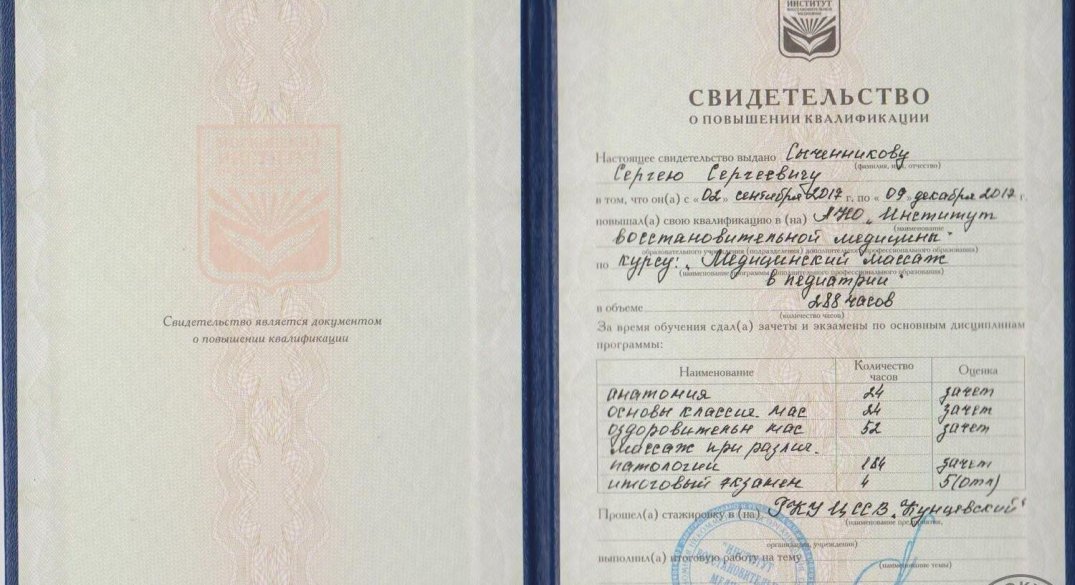 ИНСТИТУТ
Свидетельство является документом
о повышении квалификации
ИНСТИТУТ
ВОССТАНОВИТЕЛЬНОЙ
МЕДИЦИНЫ
СВИДЕТЕЛЬСТВО
О ПОВЫШЕНИИ КВАЛИФИКАЦИИ
Настоящее свидетельство выдано Сыченникову
(фамилия, имя, отчество)
Сергею Сергеевичу
в том, что он(а) с «02» сентября 2017 г. по «09» декабря 2017 г.
повышал(а) свою квалификацию в (на) АНО „Институт
(наименование
восстановительной медицины"
образовательного учреждения (подразделения) дополнительного профессионального образования)
по курсу: „Медицинский массаж
(наименование программы дополнительного профессионального образования)
в педиатрии"
в объеме 288 часов
(количество часов)
За время обучения сдал(а) зачеты и экзамены по основным дисциплинам
программы:
Наименование Количество часов Оценка
анатомия 24 зачет
основы классич. мас 24 зачет
оздоровительн мас 52 зачет
массаж при различ.
патологии 184 зачет
итоговый экзамен 4 5(отл)
Прошел(а) стажировку в (на) ГКУ ЦССВ „Кунцевский"
(наименование предприятия,
организации, учреждения)
выполнил(а) итоговую работу на тему
(наименование темы)
"ИНСТИТУТ
ВОССТАНОВИТЕЛЬНОЙ